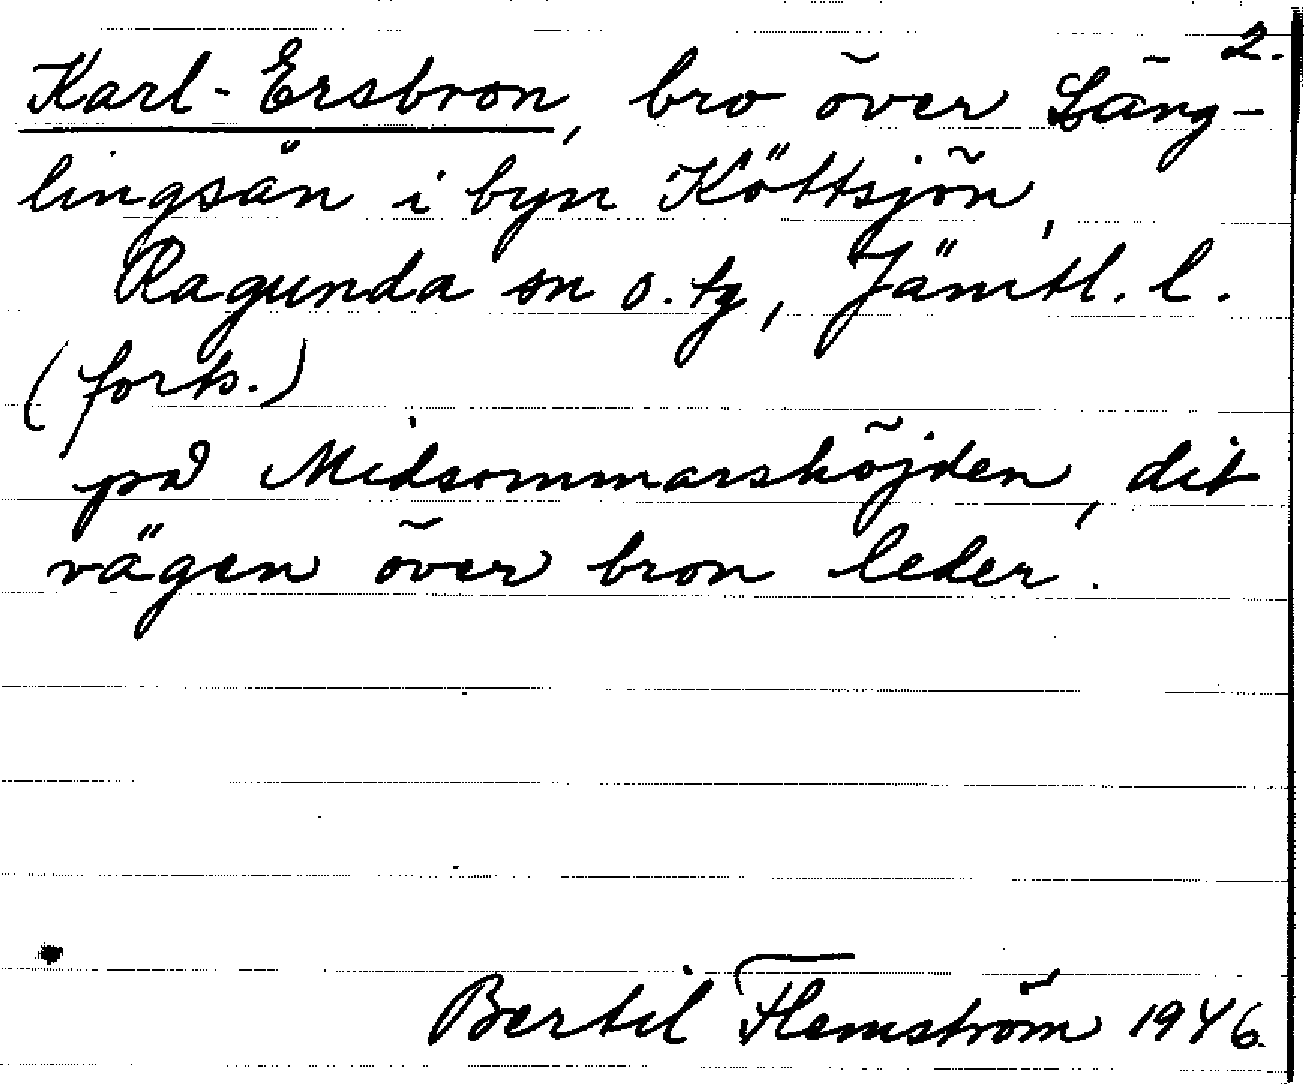 2.
Karl-Ersbron, bro över Läng-
lingsån i byn Köttsjön,
Ragunda sn o. tg, Jämtl. l.
(forts.)
på Midsommarshöjden, dit
vägen över bron leder.
Bertil Flemström 1946